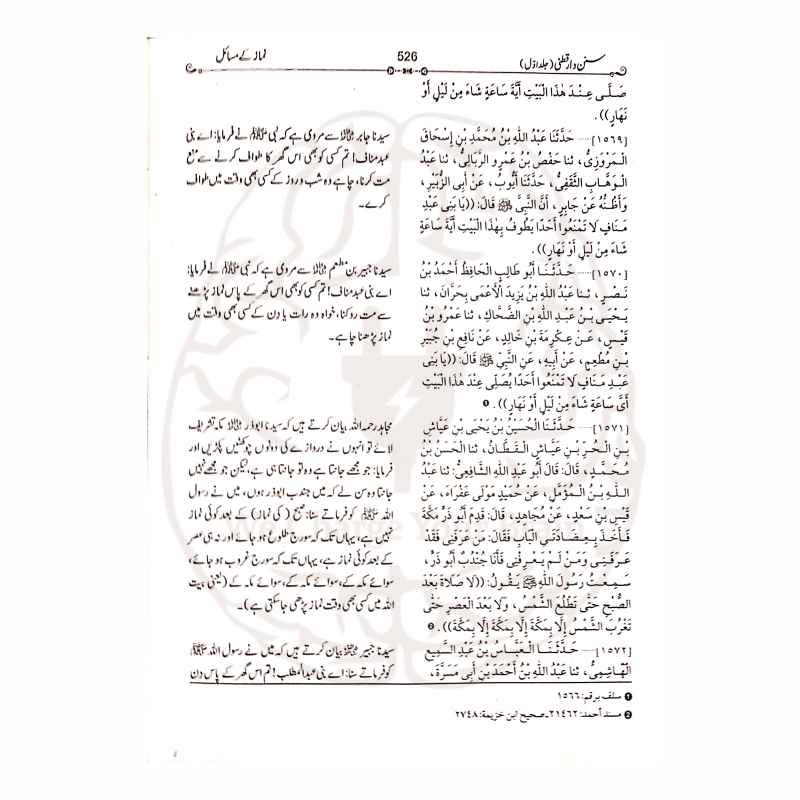 سنن دار قطنی (جلد اوّل)
526
نماز کے مسائل
صَلَّى عِنْدَ هٰذَا الْبَيْتِ أَيَّةَ سَاعَةٍ شَاءَ مِنْ لَيْلٍ أَوْ
نَهَارٍ)).
[١٥٦٩]..... حَدَّثَنَا عَبْدُ اللّٰهِ بْنُ مُحَمَّدِ بْنِ إِسْحَاقَ
الْمَرْوَزِيُّ، ثنا حَفْصُ بْنُ عَمْرٍو الرَّبَالِيُّ، ثنا عَبْدُ
الْوَهَّابِ الثَّقَفِيُّ، حَدَّثَنَا أَيُّوبُ، عَنْ أَبِي الزُّبَيْرِ،
وَأَظُنُّهُ عَنْ جَابِرٍ، أَنَّ النَّبِيَّ ﷺ قَالَ: ((يَا بَنِي عَبْدِ
مَنَافٍ لَا تَمْنَعُوا أَحَدًا يَطُوفُ بِهٰذَا الْبَيْتِ أَيَّةَ سَاعَةٍ
شَاءَ مِنْ لَيْلٍ أَوْ نَهَارٍ)).
[١٥٧٠]..... حَدَّثَنَا أَبُو طَالِبٍ الْحَافِظُ أَحْمَدُ بْنُ
نَصْرٍ، ثنا عَبْدُ اللّٰهِ بْنُ يَزِيدَ الْأَعْمَى بِحَرَّانَ، ثنا
يَحْيَى بْنُ عَبْدِ اللّٰهِ بْنِ الضَّحَّاكِ، ثنا عَمْرُو بْنُ
قَيْسٍ، عَنْ عِكْرِمَةَ بْنِ خَالِدٍ، عَنْ نَافِعِ بْنِ جُبَيْرِ
بْنِ مُطْعِمٍ، عَنْ أَبِيهِ، عَنِ النَّبِيِّ ﷺ قَالَ: ((يَا بَنِي
عَبْدِ مَنَافٍ لَا تَمْنَعُوا أَحَدًا يُصَلِّي عِنْدَ هٰذَا الْبَيْتِ
أَيَّ سَاعَةٍ شَاءَ مِنْ لَيْلٍ أَوْ نَهَارٍ)). ❶
[١٥٧١]..... حَدَّثَنَا الْحُسَيْنُ بْنُ يَحْيَى بْنِ عَيَّاشِ
بْنِ الْحُرِّ بْنِ عَيَّاشٍ الْقَطَّانُ، ثنا الْحَسَنُ بْنُ
مُحَمَّدٍ، قَالَ: قَالَ أَبُو عَبْدِ اللّٰهِ الشَّافِعِيُّ: ثنا عَبْدُ
اللّٰهِ بْنُ الْمُؤَمَّلِ، عَنْ حُمَيْدٍ مَوْلَى عَفْرَاءَ، عَنْ
قَيْسِ بْنِ سَعْدٍ، عَنْ مُجَاهِدٍ، قَالَ: قَدِمَ أَبُو ذَرٍّ مَكَّةَ
فَأَخَذَ بِعِضَادَتَيِ الْبَابِ فَقَالَ: مَنْ عَرَفَنِي فَقَدْ
عَرَفَنِي وَمَنْ لَمْ يَعْرِفْنِي فَأَنَا جُنْدُبٌ أَبُو ذَرٍّ،
سَمِعْتُ رَسُولَ اللّٰهِ ﷺ يَقُولُ: ((لَا صَلَاةَ بَعْدَ
الصُّبْحِ حَتَّى تَطْلُعَ الشَّمْسُ، وَلَا بَعْدَ الْعَصْرِ حَتَّى
تَغْرُبَ الشَّمْسُ إِلَّا بِمَكَّةَ إِلَّا بِمَكَّةَ إِلَّا بِمَكَّةَ)). ❷
[١٥٧٢]..... حَدَّثَنَا الْعَبَّاسُ بْنُ عَبْدِ السَّمِيعِ
الْهَاشِمِيُّ، ثنا عَبْدُ اللّٰهِ بْنُ أَحْمَدَ بْنِ أَبِي مَسَرَّةَ،
سیدنا جابر رضی اللہ عنہ سے مروی ہے کہ نبی ﷺ نے فرمایا: اے بنی
عبد مناف! تم کسی کو بھی اس گھر کا طواف کرنے سے منع
مت کرنا، چاہے وہ شب و روز کے کسی بھی وقت میں طواف
کرے۔
سیدنا جبیر بن مطعم رضی اللہ عنہ سے مروی ہے کہ نبی ﷺ نے فرمایا:
اے بنی عبد مناف! تم کسی کو بھی اس گھر کے پاس نماز پڑھنے
سے مت روکنا، خواہ وہ رات یا دن کے کسی بھی وقت میں
نماز پڑھنا چاہے۔
مجاہد رحمہ اللہ بیان کرتے ہیں کہ سیدنا ابوذر رضی اللہ عنہ مکہ تشریف
لائے تو انہوں نے دروازے کی دونوں چوکھٹیں پکڑیں اور
فرمایا: جو مجھے جانتا ہے وہ تو جانتا ہی ہے، لیکن جو مجھے نہیں
جانتا وہ سن لے کہ میں جندب ابوذر ہوں، میں نے رسول
اللہ ﷺ کو فرماتے سنا: صبح (کی نماز) کے بعد کوئی نماز
نہیں ہے، یہاں تک کہ سورج طلوع ہو جائے اور نہ ہی عصر
کے بعد کوئی نماز ہے، یہاں تک کہ سورج غروب ہو جائے،
سوائے مکہ کے، سوائے مکہ کے، سوائے مکہ کے (یعنی بیت
اللہ میں کسی بھی وقت نماز پڑھی جا سکتی ہے)۔
سیدنا جبیر رضی اللہ عنہ بیان کرتے ہیں کہ میں نے رسول اللہ ﷺ
کو فرماتے سنا: اے بنی عبدالمطلب! تم اس گھر کے پاس دن
❶ سلف برقم: ١٥٦٦
❷ مسند أحمد: ٢١٤٦٢۔ صحیح ابن خزیمة: ٢٧٤٨